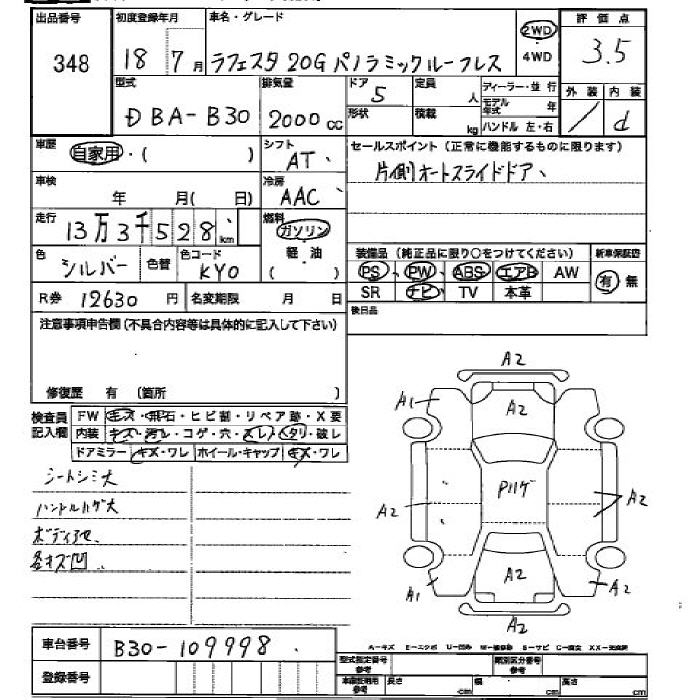 出品番号 初度登録年月 車名・グレード 2WD・4WD 評価点
348 18年 7月 ラフェスタ 20G パノラミックルーフレス 3.5
型式 排気量 ドア 定員 ディーラー・並行 外装 内装
DBA-B30 2000cc 5 人 モデル年式 年 / d
形状 積載 kg ハンドル 左・右
車歴 自家用・( ) シフト AT セールスポイント(正常に機能するものに限ります)
片側オートスライドドア、
車検 年 月( 日) 冷房 AAC
走行 13万3千528km 燃料 ガソリン・軽油( )
色 シルバー 色替 色コード KY0
装備品(純正品に限り○をつけてください) 新車保証書
PS PW ABS エアB AW 有・無
SR ナビ TV 本革
R券 12630円 名変期限 月 日 後日品
注意事項申告欄(不具合内容等は具体的に記入して下さい)
修復歴 有(箇所 )
検査員記入欄 FW キズ・飛石・ヒビ割・リペア跡・X要
内装 キズ・汚レ・コゲ・穴・スレ・ヘタリ・破レ
ドアミラー キズ・ワレ ホイール・キャップ キズ・ワレ
シートシミ大
ハンドルハゲ大
各キズ凹
A2
A1 A2
Pハゲ
A2 A2
A1 A2 A2
A2
車台番号 B30-109998
登録番号
A-キズ E-エクボ U-凹み W-補修跡 S-サビ C-腐食 XX-交換済
型式指定番号参考 類別区分番号参考
車庫証明用参考 長さ cm 幅 cm 高さ cm